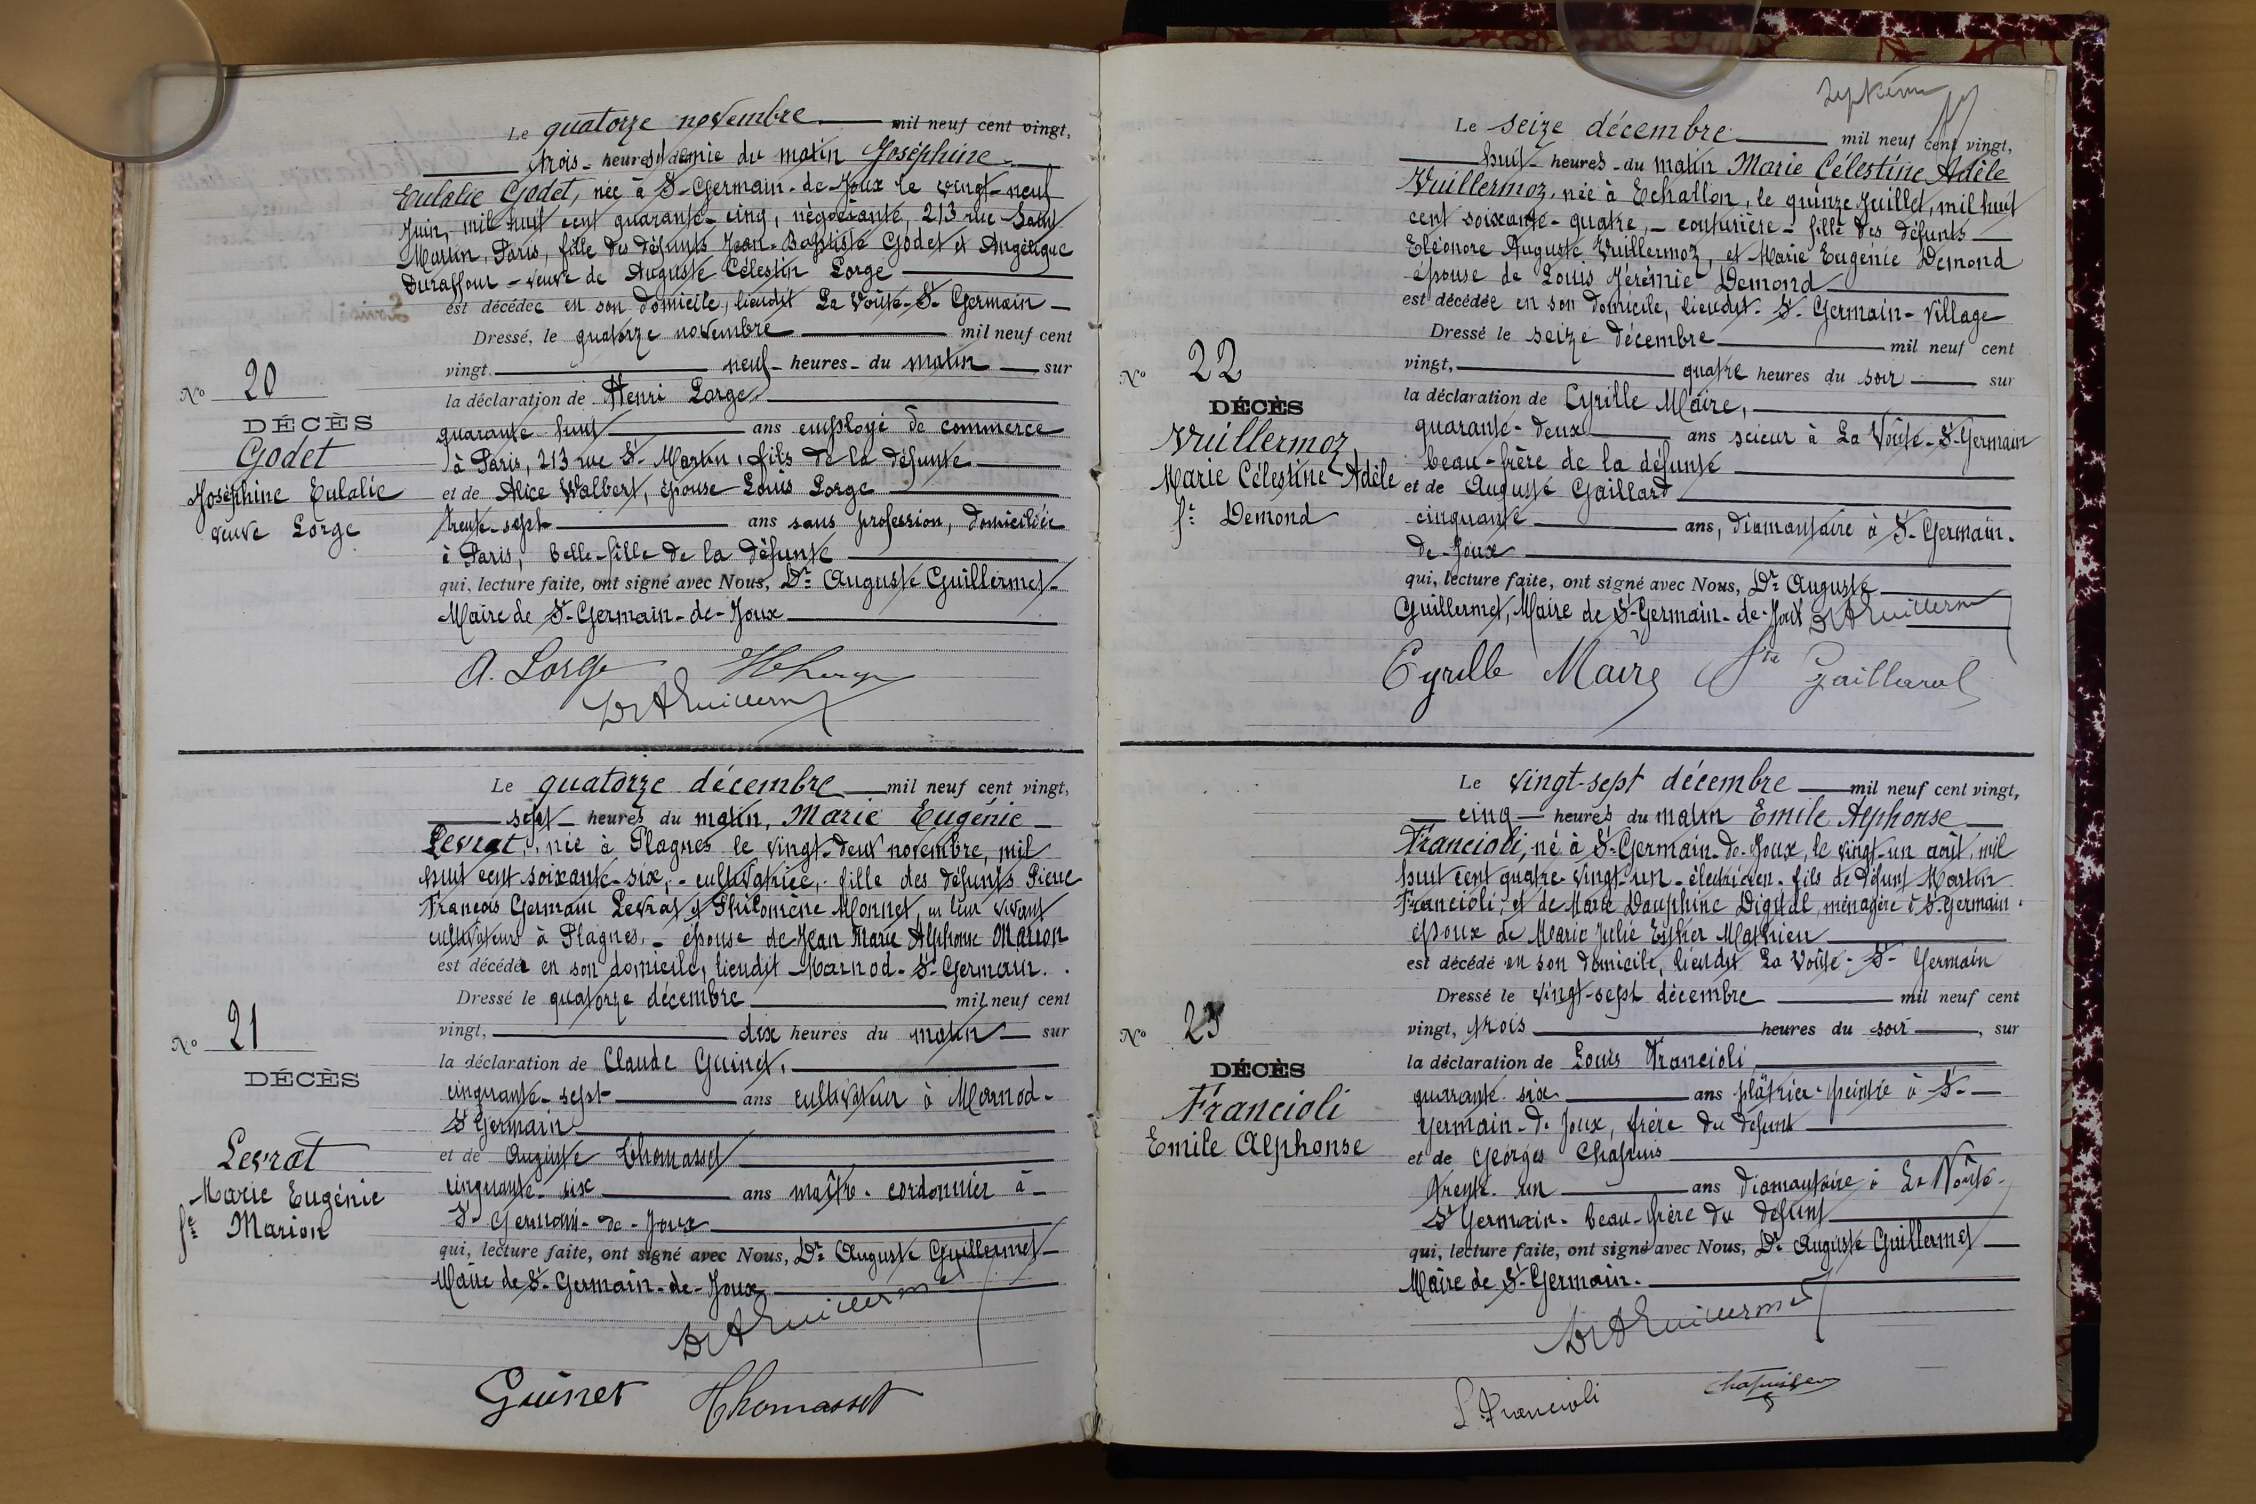 Le quatorze novembre mil neuf cent vingt,
trois heures demie du matin Joséphine
Eulalie Godet, née à St-Germain-de-Joux le vingt-neuf
Juin, mil huit cent quarante-cinq, négociante, 213 rue Saint
Martin, Paris, fille des défunts Jean-Baptiste Godet et Angélique
Duraffour - veuve de Auguste Célestin Lorge
est décédée en son domicile, lieudit La Voûte-St-Germain
Dressé, le quatorze novembre mil neuf cent
vingt. neuf heures du matin sur
la déclaration de Henri Lorge
quarante-huit ans employé de commerce
à Paris, 213 rue St-Martin, fils de la défunte
et de Alice Walbert, épouse Louis Lorge
trente-sept ans sans profession, domiciliée
à Paris, belle-fille de la défunte
qui, lecture faite, ont signé avec Nous, Dr Auguste Guillermet
Maire de St-Germain-de-Joux
No 20
DÉCÈS
Godet
Joséphine Eulalie
veuve Lorge
A. Lorge
Dr A Guillermet
Le quatorze décembre mil neuf cent vingt,
sept heures du matin, Marie Eugénie
Levrat, née à Plagnes le vingt-deux novembre, mil
huit cent soixante-six, - cultivatrice, - fille des défunts Pierre
François Germain Levrat et Philomène Monnet, en leur vivant
cultivateurs à Plagnes, - épouse de Jean Marie Alphonse Marion
est décédée en son domicile, lieudit Marnod-St-Germain.
Dressé le quatorze décembre mil neuf cent
vingt, dix heures du matin sur
la déclaration de Claude Guinet,
cinquante-sept ans cultivateur à Marnod-
St Germain
et de Auguste Thomasset
cinquante-six ans maître-cordonnier à
St-Germain-de-Joux
qui, lecture faite, ont signé avec Nous, Dr Auguste Guillermet
Maire de St-Germain-de-Joux
No 21
DÉCÈS
Levrat
Marie Eugénie
fe Marion
Dr A Guillermet
Guinet Thomasset
Le seize décembre mil neuf cent vingt,
huit heures du matin Marie Célestine Adèle
Vuillermoz, née à Echallon, le quinze Juillet, mil huit
cent soixante-quatre, - couturière - fille des défunts
Eléonore Auguste Vuillermoz, et Marie Eugénie Demond
épouse de Louis Jérémie Demond
est décédée en son domicile, lieudit St-Germain-Village
Dressé le seize décembre mil neuf cent
vingt, quatre heures du soir sur
la déclaration de Cyrille Maire,
quarante-deux ans scieur à La Voûte-St-Germain
beau-frère de la défunte
et de Auguste Gaillard
cinquante ans, diamantaire à St-Germain-
de-Joux
qui, lecture faite, ont signé avec Nous, Dr Auguste
Guillermet, Maire de St-Germain-de-Joux Dr A Guillermet
No 22
DÉCÈS
Vuillermoz
Marie Célestine Adèle
fe Demond
Cyrille Maire Gaillard
Le vingt-sept décembre mil neuf cent vingt,
cinq heures du matin Emile Alphonse
Francioli, né à St-Germain-de-Joux, le vingt-un août, mil
huit cent quatre-vingt-un - électricien - fils de défunt Martin
Francioli, et de Marie Dauphine Digital, ménagère à St-Germain
époux de Marie Julie Esther Mathieu
est décédé en son domicile, lieudit La Voûte-St-Germain
Dressé le vingt-sept décembre mil neuf cent
vingt, trois heures du soir, sur
la déclaration de Louis Francioli
quarante-six ans plâtrier-peintre à St-
Germain-de-Joux, frère du défunt
et de Georges Chapuis
trente-un ans diamantaire à La Voûte-
St Germain-beau-frère du défunt
qui, lecture faite, ont signé avec Nous, Dr Auguste Guillermet
Maire de St-Germain.
No 23
DÉCÈS
Francioli
Emile Alphonse
Dr A Guillermet
L. Francioli